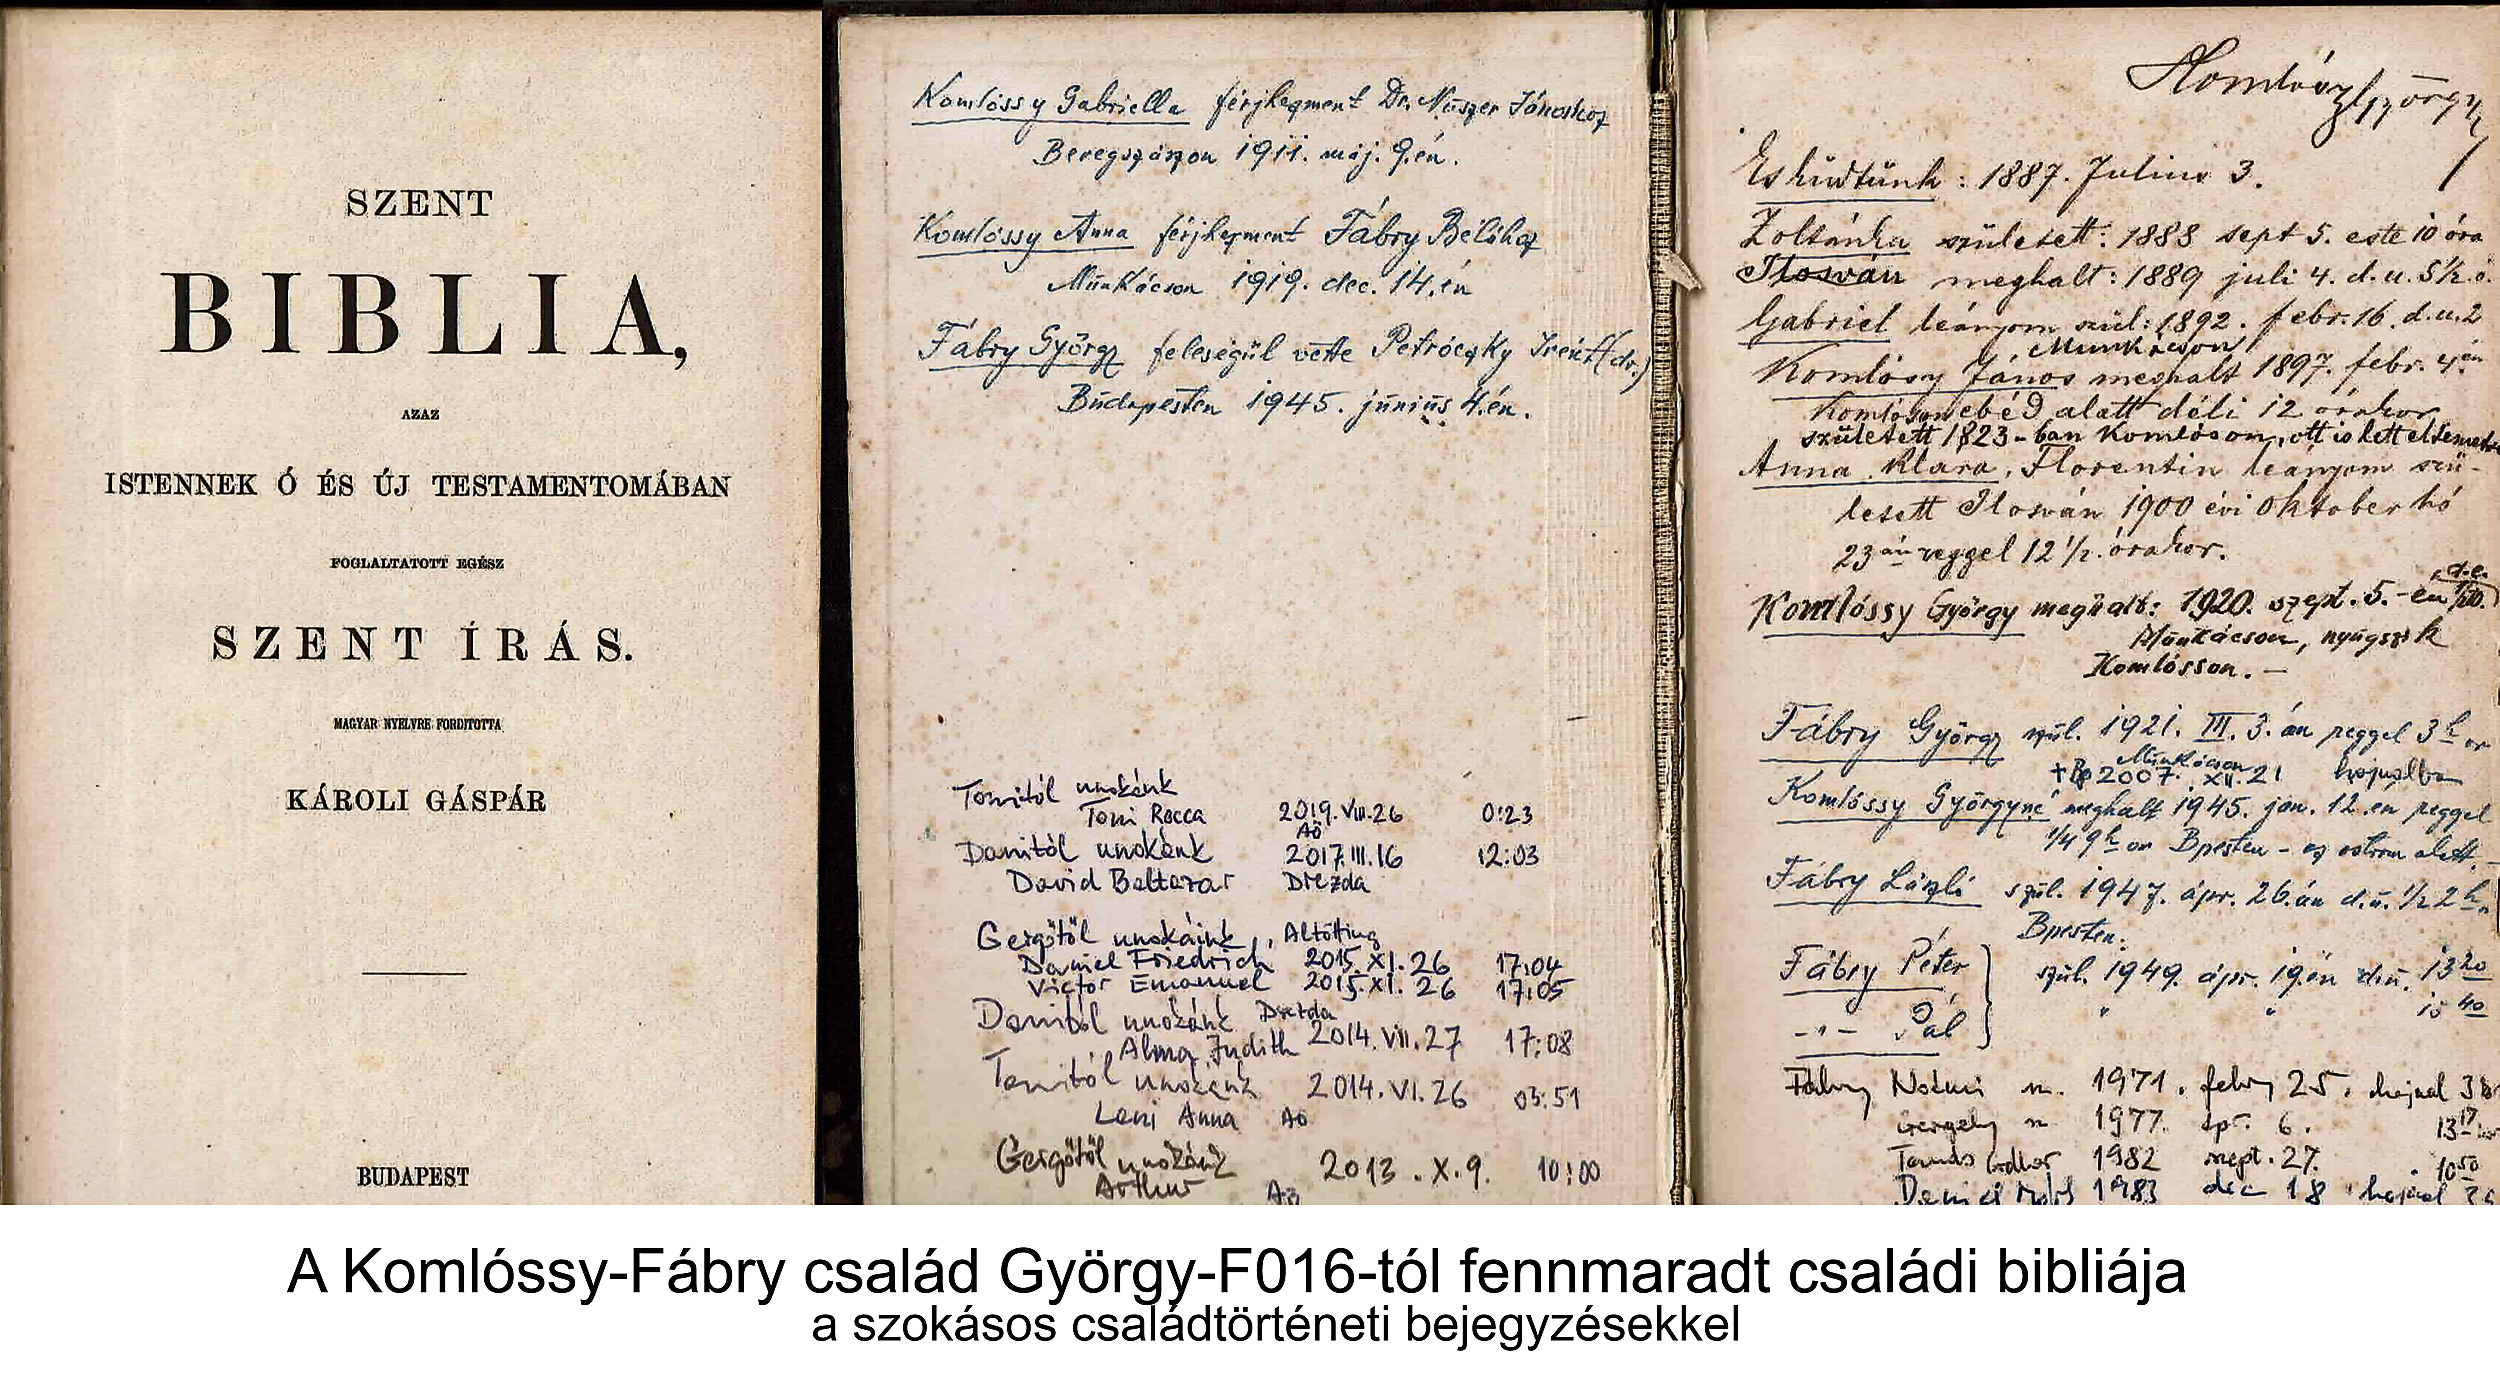 SZENT
BIBLIA,
AZAZ
ISTENNEK Ó ÉS ÚJ TESTAMENTOMÁBAN
FOGLALTATOTT EGÉSZ
SZENT ÍRÁS.
MAGYAR NYELVRE FORDITOTTA
KÁROLI GÁSPÁR
BUDAPEST
Komlóssy Gabriella férjhezment Dr. Nuszer Jánoshoz
Beregszászon 1911. máj. 9.én.
Komlóssy Anna férjhezment Fábry Bélához
Munkácson 1919. dec. 14.én
Fábry György feleségül vette Petróczky Irént (dr.)
Budapesten 1945. június 4.én.
Tomitól unokánk
Toni Rocca 2019.VIII.26 0:23
AÖ
Danitól unokánk 2017.III.16 12:03
David Baltazar Drezda
Gergőtől unokáink, Altötting
Daniel Friedrich 2015.XI.26 17:04
Victor Emanuel 2015.XI.26 17:05
Danitól unokánk Drezda
Alma Judith 2014.VII.27 17:08
Tomitól unokánk 2014.VI.26 03:51
Leni Anna AÖ
Gergőtől unokánk 2013.X.9. 10:00
Arthur AÖ
Komlósy György
Esküdtünk: 1887. Julius 3.
Zoltánka született: 1888 sept 5. este 10 óra
Ilosván meghalt: 1889 juli 4. d.u. 5½ ó.
Gabriel leányom szül: 1892. febr. 16. d.u. 2
Munkácson
Komlósy János meghalt 1897. febr. 4én
Komlóson ebéd alatt déli 12 órakor
született 1823-ban Komlóson, ott is lett eltemetve
Anna, Klara, Florentin leányom szü-
letett Ilosván 1900 évi Oktober hó
23án reggel 12½ órakor.
Komlóssy György meghalt: 1920. szept. 5.-én d.e.
Munkácson, nyugszik
Komlósson. –
Fábry György szül. 1921. III. 3.án reggel 3h or
Munkácson
+Bp 2007. XII. 21 hajnalban
Komlóssy Györgyné meghalt 1945. jan. 12.én reggel
1/4 9h or Bpesten – az ostrom alatt. –
Fábry László szül. 1947. ápr. 26.án d.u. ½ 2h
Bpesten.
Fábry Péter szül. 1949. ápr. 19.én d.u. 13 20
–"– Pál " " 13 40
Fábry Noémi n. 1971. febr 25. hajnal 3
Gergely n 1977. ápr. 6. 13 17
Tamás 1982 szept. 27. 10 50
Daniel 1983 dec 18 hajnal
A Komlóssy-Fábry család György-F016-tól fennmaradt családi bibliája
a szokásos családtörténeti bejegyzésekkel